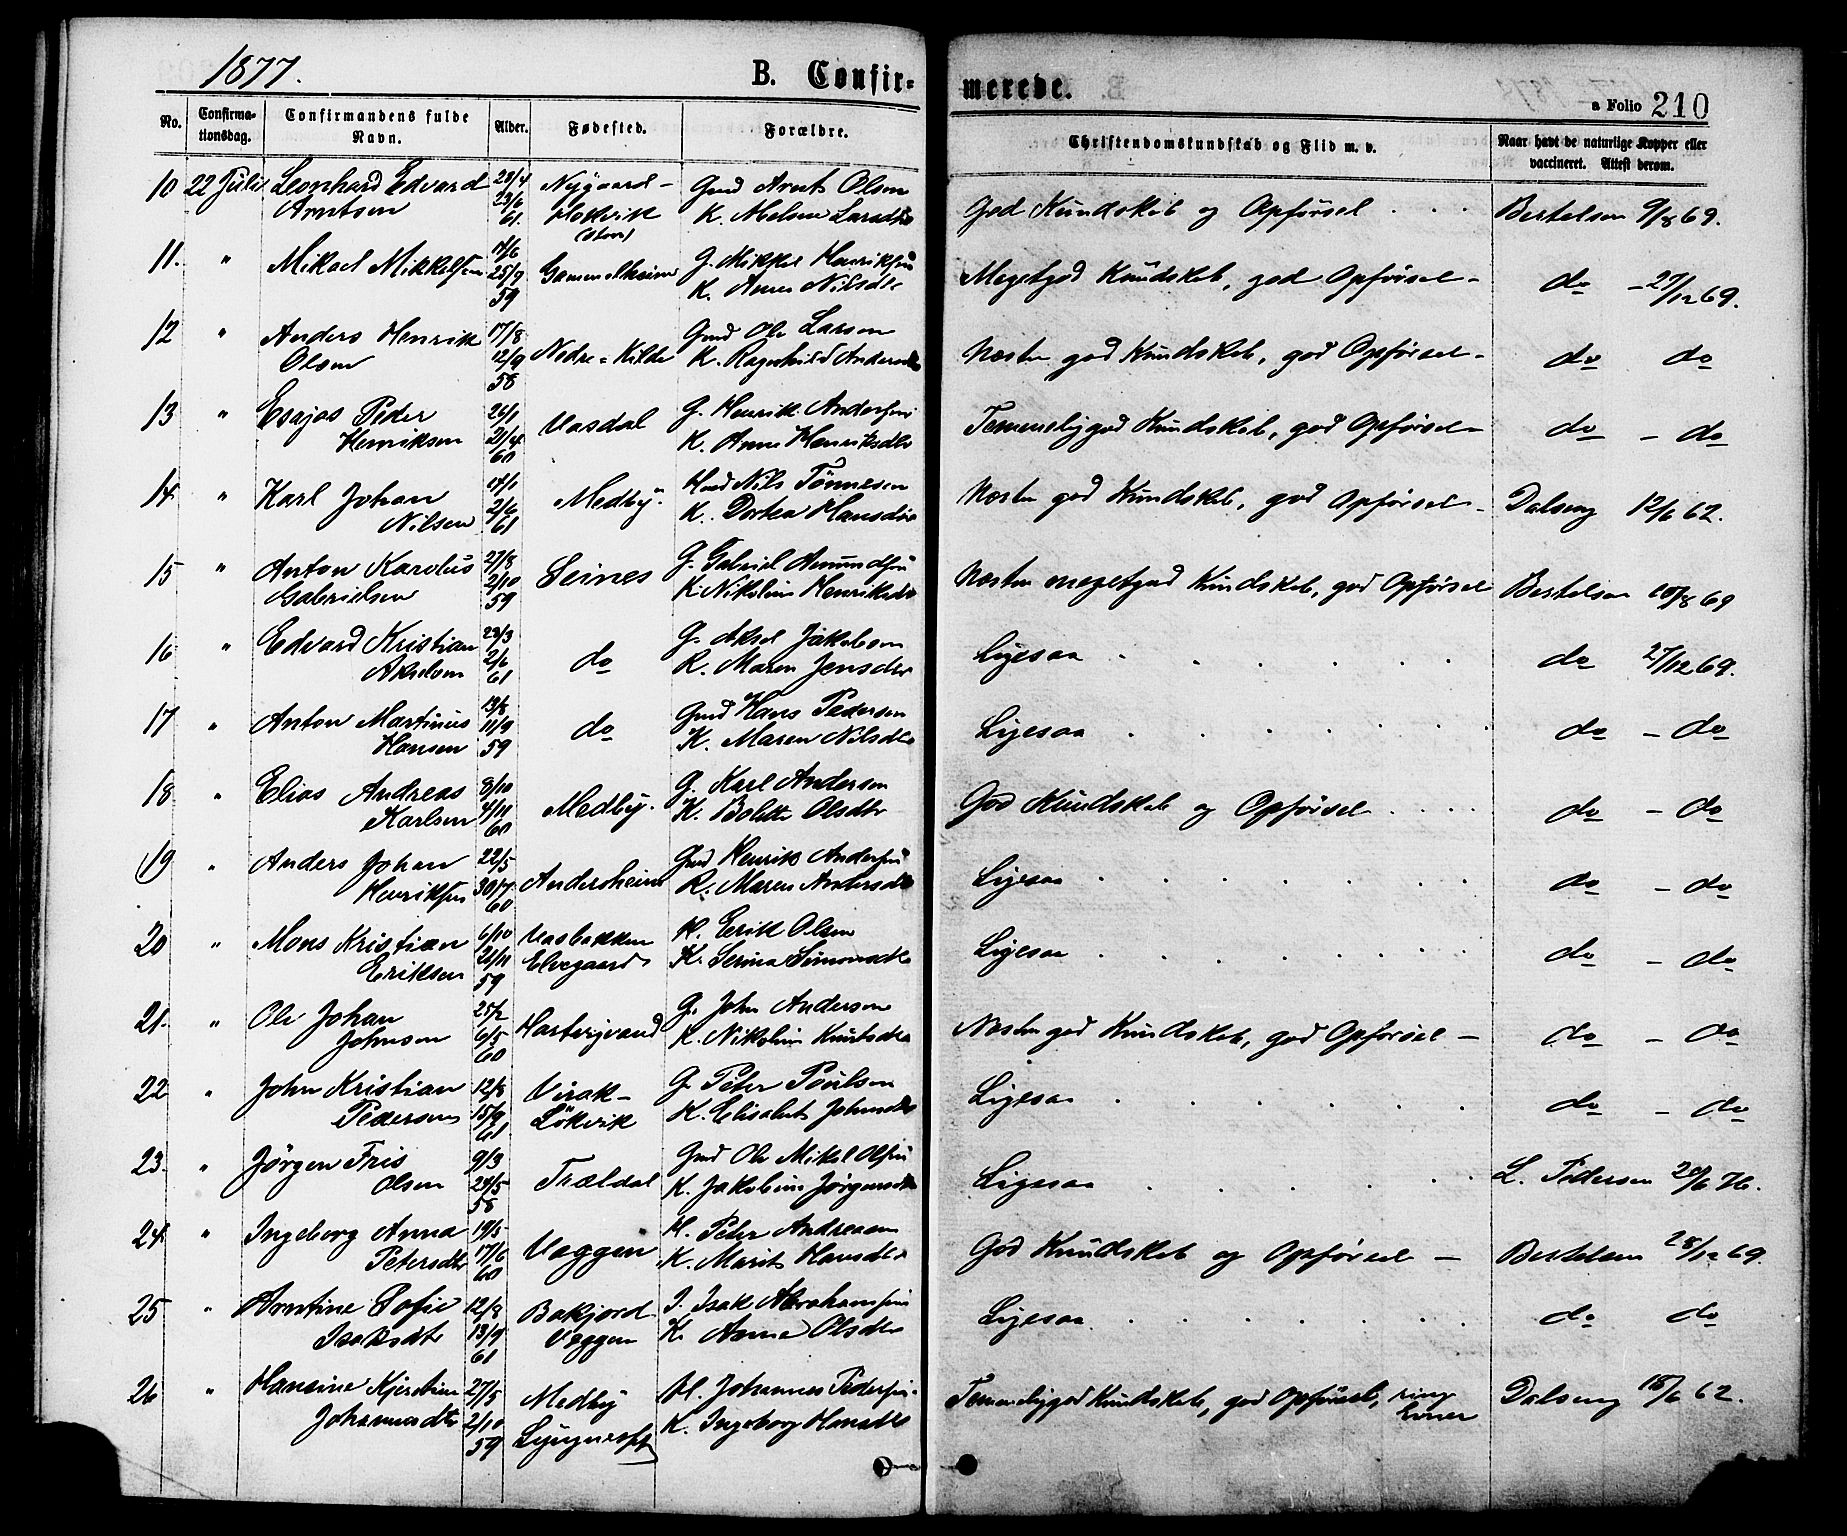 1877.
B. Confir-
merede.
a Folio 210
No.
Confirma-
tionsdag.
Confirmandens fulde
Navn.
Alder.
Fødested.
Forældre.
Christendomskundskab og Flid m. v.
Naar havt de naturlige Kopper eller
vaccineret. Attest derom.
10 22 Juli Leonhard Edvard 28/4 Nygaard- Gmd Arnt Olsen
Arntsen 23/6 K. Larsdtr
61.
God Kundskab og Opførsel Bertelsen 9/8 69.
11. " Mikael Mikkelsen 14/6 G. Mikkel Henriksen
25/9 Gammelheim K. Anne Nilsdtr
59
Megetgod Kundskab, god Opførsel - do - 27/12 69.
12 " Anders Henrik 17/8 Gmd Ole Larsen
Olsen 12/9 Nedre=Kilde K. Ragnhild Andersdtr
58
Næsten god Kundskab, god Opførsel - do do
13 " Esajas Peder 26/1 Vasdal G. Henrik Andersen
Henriksen 21/4 K. Anne Henriksdtr
60
Temmeliggod Kundskab, god Opførsel - do - do
14. " Karl Johan 14/1 Medby. Nils Tönnesen
Nilsen 2/6 K. Dortea Hansdtr
61
Næsten god Kundskab, god Opførsel - Dalseng 12/6 62.
15 " Anton Karolus 27/8 Seines G. Gabriel Amundsen
Gabrielsen 2/10 K. Nikoline Henriksdtr
59
Næsten megetgod Kundskab, god Opførsel Bertelsen 10/8 69
16 " Edvard Kristian 23/3 do G. Aksel Jakobsen
Akselsen 2/6 K. Maren Jensdtr
61
Ligesaa do 27/12 69.
17 " Anton Martinus 13/8 do Gmd Hans Pedersen
Hansen 11/9 K. Maren Nilsdtr
59
Ligesaa do - do
18 " Elias Andreas 8/10 Medby. G. Karl Andersen
Karlsen 4/11 K. Bolette Olsdtr
60
God Kundskab og Opførsel do - do
19 " Anders Johan 22/5 Gmd Henrik Andersen
Henriksen 30/7 Andersheim K. Maren Andersdtr
60
Ligesaa do - do
20 " Mons Kristian 6/10 Vasbakken H. Erik Olsen
Eriksen 21/11 Elvegaard K. Serina Simonsdtr
59
Ligesaa do - do
21. " Ole Johan 25/2 Hartvigvand G. John Andersen
Johnsen 6/5 K. Nikoline Knutsdtr
60
Næsten god Kundskab, god Opførsel - do - do
22 " John Kristian 12/8 Virak- G. Peter Poulsen
Pedersen 15/9 Lökvik K. Elisabet Johnsdtr
61
Ligesaa do - do
23. " Jörgen Fris 9/3 Trældal Gmd Ole Mikal Olsen
Olsen 24/5 K. Jakobine Jörgensdtr
58
Ligesaa L. Pedersen 20/6 76.
24. " Ingeborg Anna 19/5 Vaggen H. Peter Andreasen
Petersdtr 17/6 K. Marit Hansdtr
60
God Kundskab og Opførsel - Bertelsen 28/12 69.
25 " Arntine Sofie 12/8 Bakjord I. Isak Abrahamsen
Isaksdtr 13/9 Vaggen K. Anna Olsdtr
61
Ligesaa do do
26 " Hansine Kjerstine 27/5 Medby H. Johannes Pedersen
Johannesdtr 2/10 K. Ingeborg Hansdtr
59
Temmeliggod Kundskab, god Opførsel, ringe Dalseng 18/6 62.
Evner